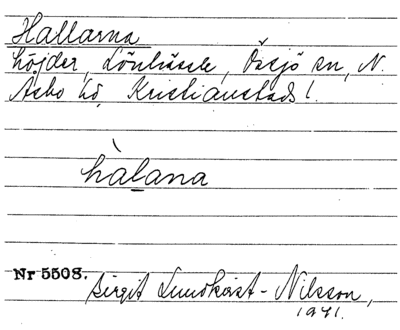 Hallarna
höjder, Lönhässle, Össjö sn, N.
Åsbo hd, Kristianstads l.
hàlana
Nr 5508.
Birgit Lundkvist-Nilsson,
1941.